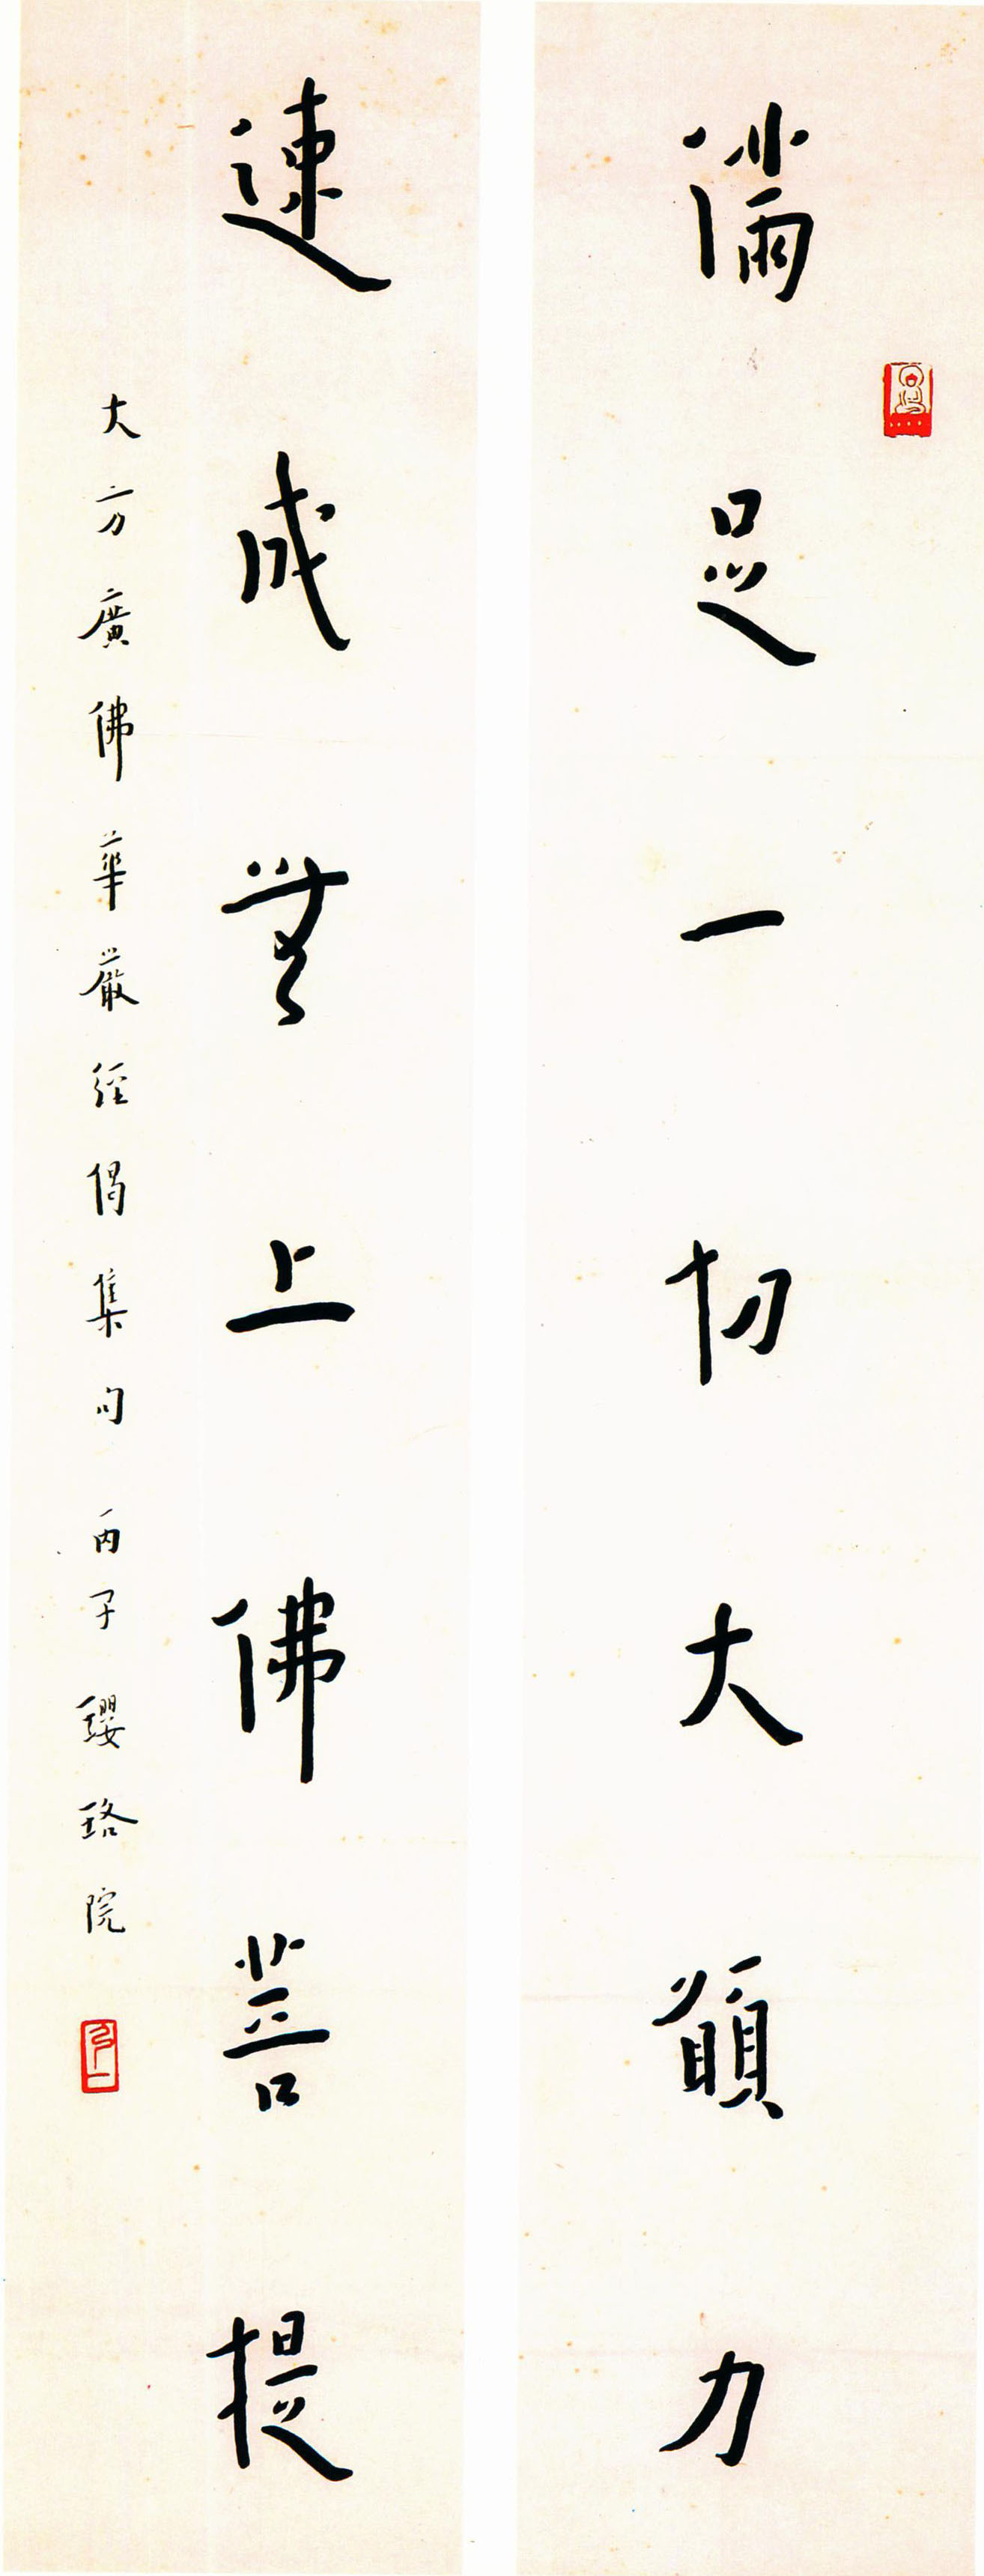 滿足一切大願力
速成無上佛菩提
大方廣佛華嚴經偈集句 丙子 瓔珞院